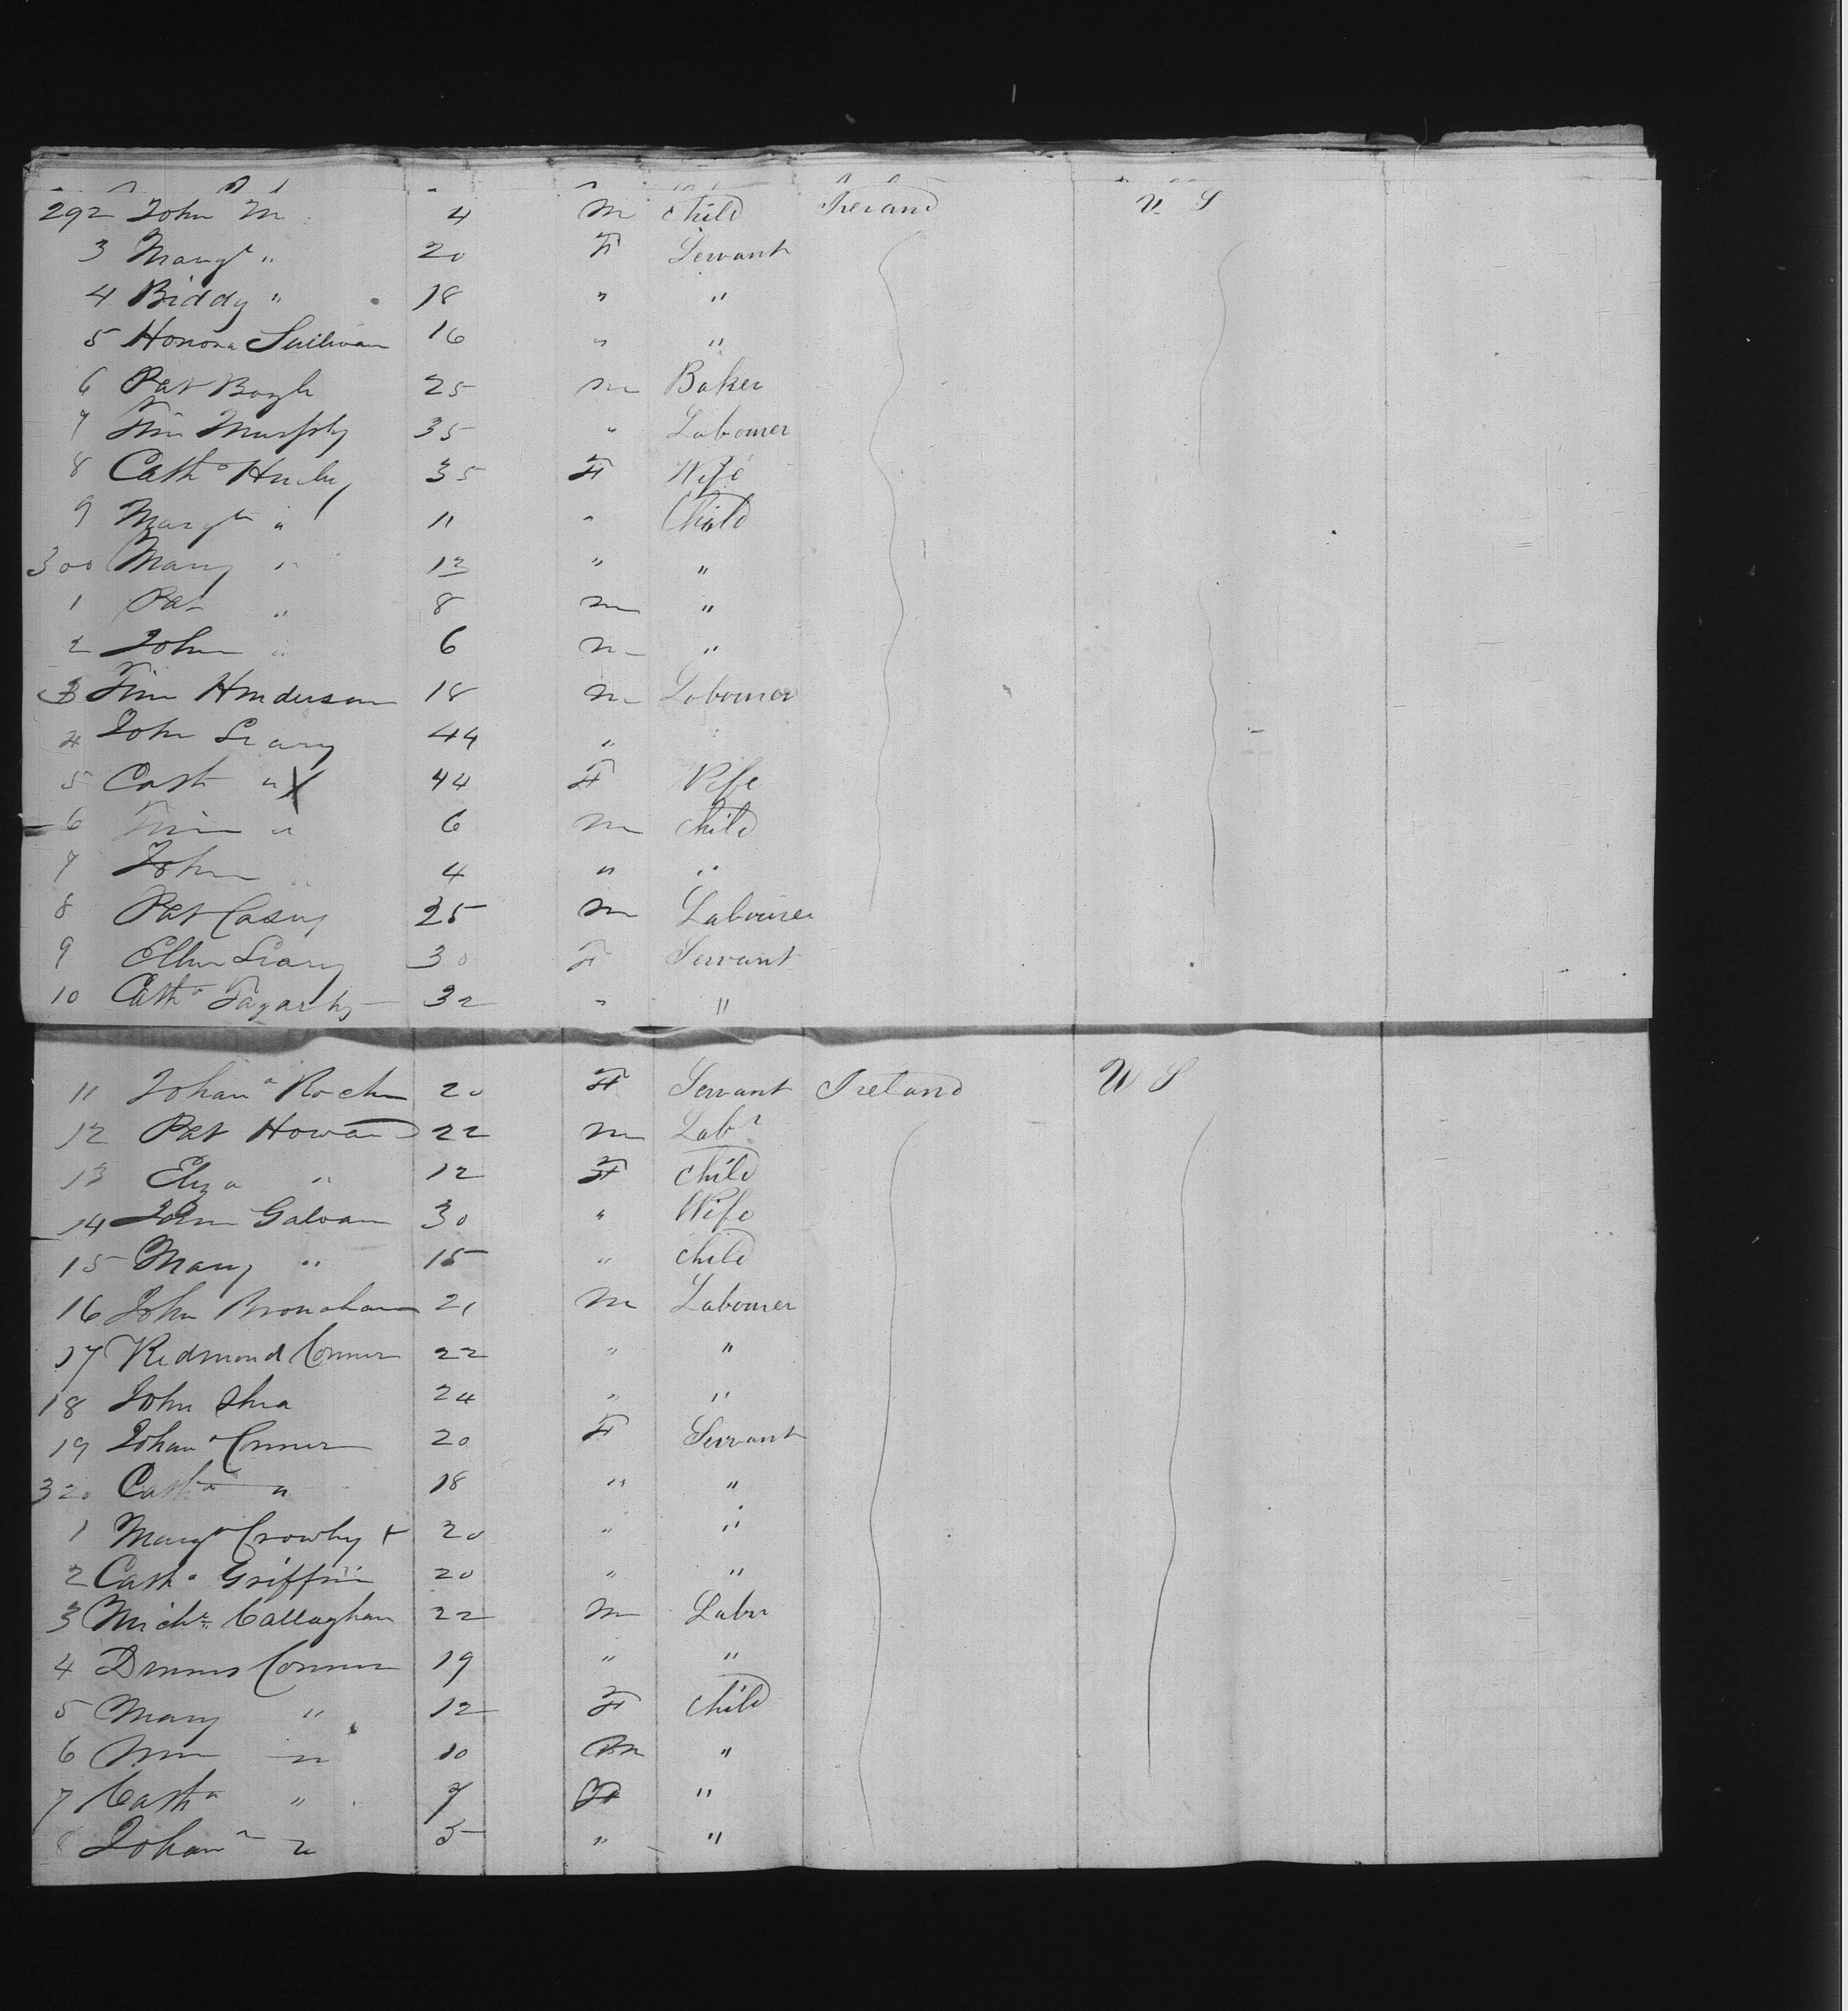 292 John M 4 M Child Ireland U S
3 Margt " 20 F Servant
4 Biddy " 18 " "
5 Honora Sullivan 16 " "
6 Pat Boyle 25 M Baker
7 Tim Murphy 35 " Labourer
8 Cath a Hurly 35 F Wife
9 Margt " 11 " Child
300 Mary " 12 " "
1 Pat " 8 M "
2 John " 6 M "
3 Tim Henderson 18 M Labourer
4 John Leary 44 "
5 Cath " X 44 F Wife
6 Tim " 6 M Child
7 John " 4 " "
8 Pat Casey 25 M Labourer
9 Ellen Leary 30 F Servant
10 Cath a 32 " "
11 Johan a Roche 20 F Servant Ireland U S
12 Pat Howard 22 M Labr
13 Eliza " 12 F Child
14 Galvan 30 " Wife
15 Mary " 15 " Child
16 John Bronahan 21 M Labourer
17 Redmond Conner 22 " "
18 John Shea 24 " "
19 Johan a Conner 20 F Servant
320 Cath a " 18 " "
1 Margt Crowley + 20 " "
2 Cath a Griffin 20 " "
3 Michl Callaghan 22 M Labr
4 Dennis Conner 19 " "
5 Mary " 12 F Child
6 Wm " 10 M "
7 Cath a " 7 F "
8 Johan a " 5 " "